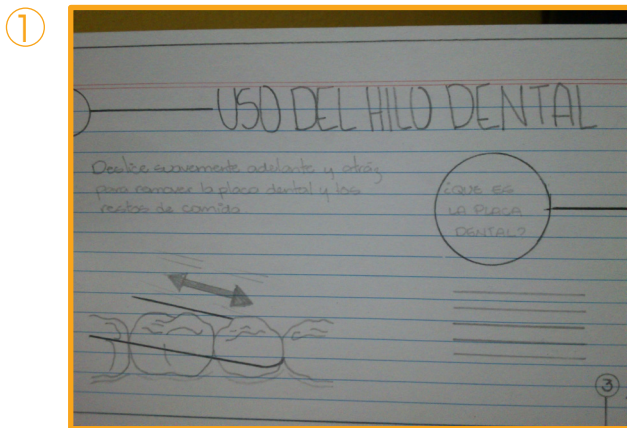 ①
USO DEL HILO DENTAL
Deslice suavemente adelante y atrás
para remover la placa dental y los
restos de comida
¿QUE ES
LA PLACA
DENTAL?
③